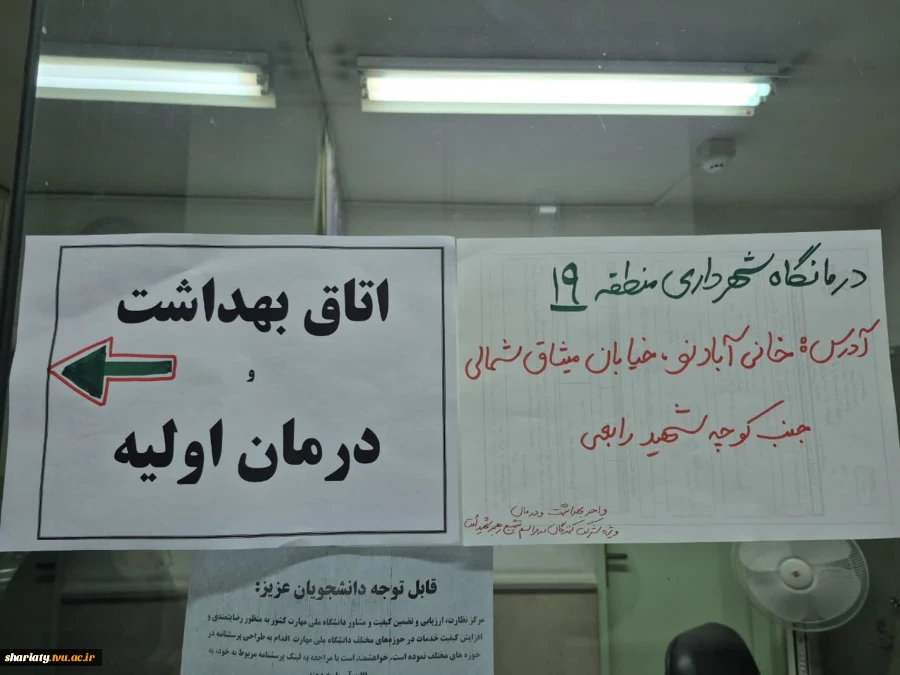 اتاق بهداشت
و
درمان اولیه
درمانگاه شهرداری منطقه ۱۹
آدرس: خانی آباد نو، خیابان میثاق شمالی
جنب کوچه شهید رابعی
واحد بهداشت و درمان
ویژه شرکت کنندگان مراسم تشییع رهبر شهید
قابل توجه دانشجویان عزیز:
مرکز نظارت، ارزیابی و تضمین کیفیت و مشاور دانشگاه ملی مهارت کشور به منظور رضایتمندی و
افزایش کیفیت خدمات در حوزه‌های مختلف دانشگاه ملی مهارت اقدام به طراحی پرسشنامه در
حوزه های مختلف نموده است. خواهشمند است با مراجعه به لینک پرسشنامه مربوط به خود، به
shariaty.tvu.ac.ir